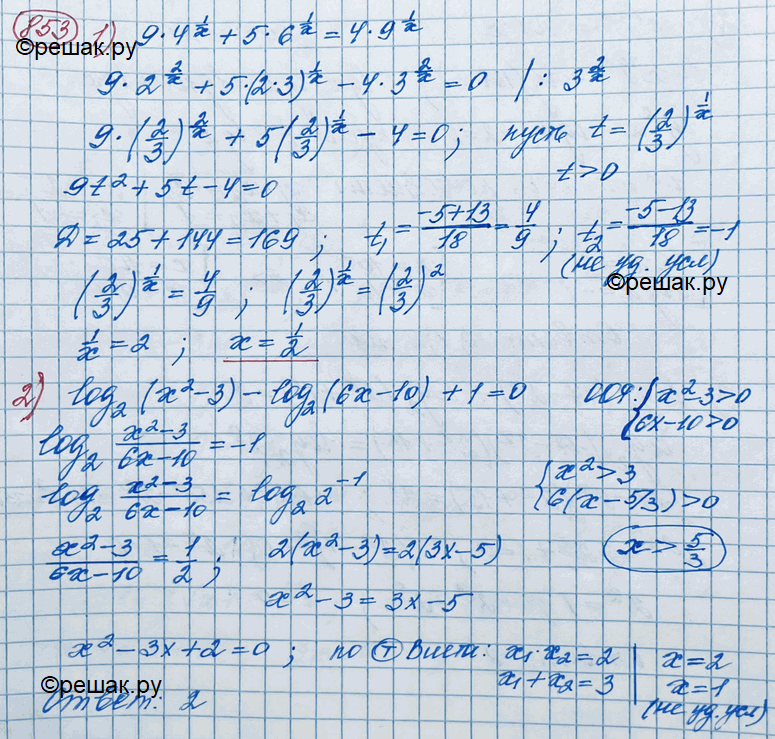 853 1) 9·4^(1/x) + 5·6^(1/x) = 4·9^(1/x)
©решак.ру
9·2^(2/x) + 5·(2·3)^(1/x) − 4·3^(2/x) = 0 | : 3^(2/x)
9·(2/3)^(2/x) + 5(2/3)^(1/x) − 4 = 0; пусть t = (2/3)^(1/x)
t > 0
9t² + 5t − 4 = 0
Д = 25 + 144 = 169; t₁ = (−5+13)/18 = 4/9; t₂ = (−5−13)/18 = −1
(не уд. усл)
(2/3)^(1/x) = 4/9; (2/3)^(1/x) = (2/3)²
©решак.ру
1/x = 2; x = 1/2
2) log₂(x²−3) − log₂(6x−10) + 1 = 0 ООФ: { x²−3>0
6x−10>0
log₂ (x²−3)/(6x−10) = −1
{ x² > 3
6(x − 5/3) > 0
log₂ (x²−3)/(6x−10) = log₂ 2^(−1)
(x²−3)/(6x−10) = 1/2; 2(x²−3) = 2(3x−5) x > 5/3
x² − 3 = 3x − 5
x² − 3x + 2 = 0; по Т Виета: x₁·x₂ = 2 | x = 2
x₁ + x₂ = 3 | x = 1
©решак.ру
(не уд. усл)
Ответ: 2